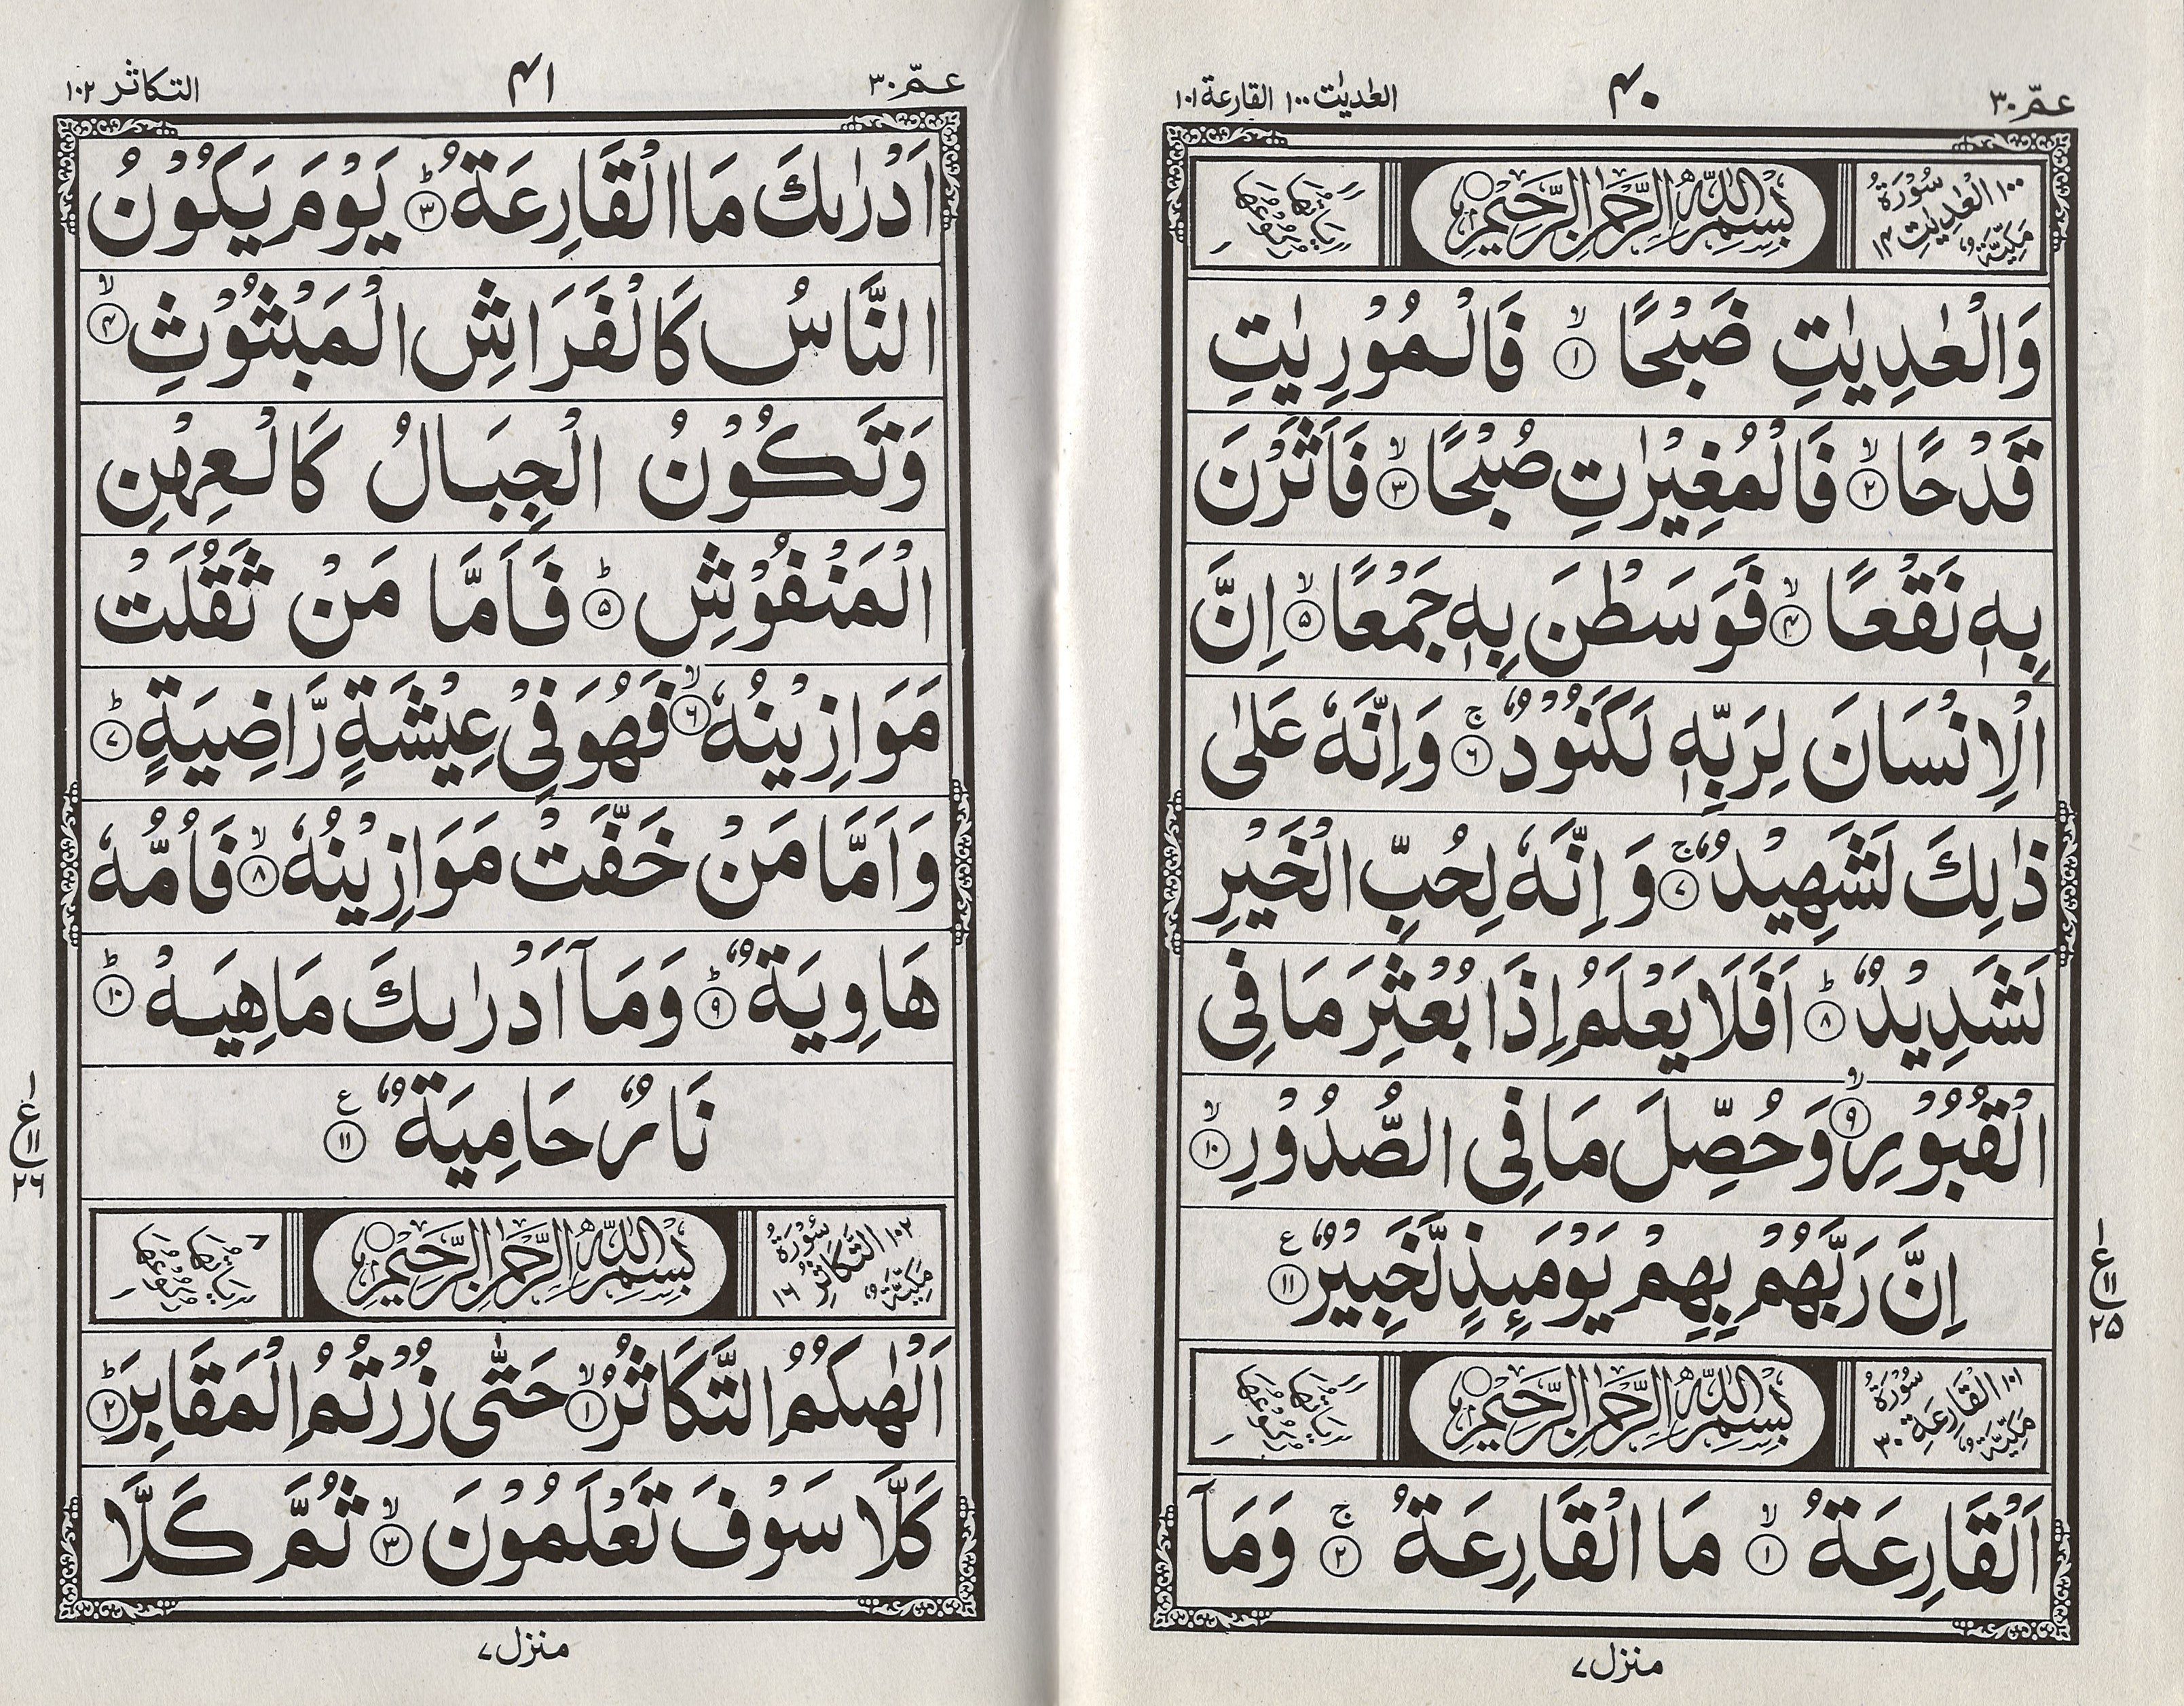 عمّ ۳۰
۴۰
العٰدیٰت ۱۰۰ القارعة ۱۰۱
۱۰۰ سُوْرَةُ الْعٰدِيٰتِ مَكِّيَّةٌ ۱۴
بِسْمِ اللّٰهِ الرَّحْمٰنِ الرَّحِيْمِ
اٰيَاتُهَا ۱۱ رُكُوْعُهَا ۱
وَالْعٰدِيٰتِ ضَبْحًا ۙ﴿۱﴾ فَالْمُوْرِيٰتِ
قَدْحًا ۙ﴿۲﴾ فَالْمُغِيْرٰتِ صُبْحًا ۙ﴿۳﴾ فَاَثَرْنَ
بِهٖ نَقْعًا ۙ﴿۴﴾ فَوَسَطْنَ بِهٖ جَمْعًا ۙ﴿۵﴾ اِنَّ
الْاِنْسَانَ لِرَبِّهٖ لَكَنُوْدٌ ۚ﴿۶﴾ وَاِنَّهٗ عَلٰى
ذٰلِكَ لَشَهِيْدٌ ۚ﴿۷﴾ وَاِنَّهٗ لِحُبِّ الْخَيْرِ
لَشَدِيْدٌ ؕ﴿۸﴾ اَفَلَا يَعْلَمُ اِذَا بُعْثِرَ مَا فِى
الْقُبُوْرِ ۙ﴿۹﴾ وَحُصِّلَ مَا فِى الصُّدُوْرِ ۙ﴿۱۰﴾
اِنَّ رَبَّهُمْ بِهِمْ يَوْمَئِذٍ لَّخَبِيْرٌ ﴿۱۱﴾ ع
۱
ع
۱۱
۲۵
۱۰۱ سُوْرَةُ الْقَارِعَةِ مَكِّيَّةٌ ۳۰
بِسْمِ اللّٰهِ الرَّحْمٰنِ الرَّحِيْمِ
اٰيَاتُهَا ۱۱ رُكُوْعُهَا ۱
اَلْقَارِعَةُ ۙ﴿۱﴾ مَا الْقَارِعَةُ ۚ﴿۲﴾ وَمَاۤ
منزل ۷
عمّ ۳۰
۴۱
التکاثر ۱۰۲
اَدْرٰىكَ مَا الْقَارِعَةُ ؕ﴿۳﴾ يَوْمَ يَكُوْنُ
النَّاسُ كَالْفَرَاشِ الْمَبْثُوْثِ ۙ﴿۴﴾
وَتَكُوْنُ الْجِبَالُ كَالْعِهْنِ
الْمَنْفُوْشِ ؕ﴿۵﴾ فَاَمَّا مَنْ ثَقُلَتْ
مَوَازِيْنُهٗ ۙ﴿۶﴾ فَهُوَ فِىْ عِيْشَةٍ رَّاضِيَةٍ ؕ﴿۷﴾
وَاَمَّا مَنْ خَفَّتْ مَوَازِيْنُهٗ ۙ﴿۸﴾ فَاُمُّهٗ
هَاوِيَةٌ ؕ﴿۹﴾ وَمَاۤ اَدْرٰىكَ مَاهِيَهْ ؕ﴿۱۰﴾
نَارٌ حَامِيَةٌ ﴿۱۱﴾ ع
۱
ع
۱۱
۲۶
۱۰۲ سُوْرَةُ التَّكَاثُرِ مَكِّيَّةٌ ۱۶
بِسْمِ اللّٰهِ الرَّحْمٰنِ الرَّحِيْمِ
اٰيَاتُهَا ۸ رُكُوْعُهَا ۱
اَلْهٰىكُمُ التَّكَاثُرُ ۙ﴿۱﴾ حَتّٰى زُرْتُمُ الْمَقَابِرَ ؕ﴿۲﴾
كَلَّا سَوْفَ تَعْلَمُوْنَ ۙ﴿۳﴾ ثُمَّ كَلَّا
منزل ۷